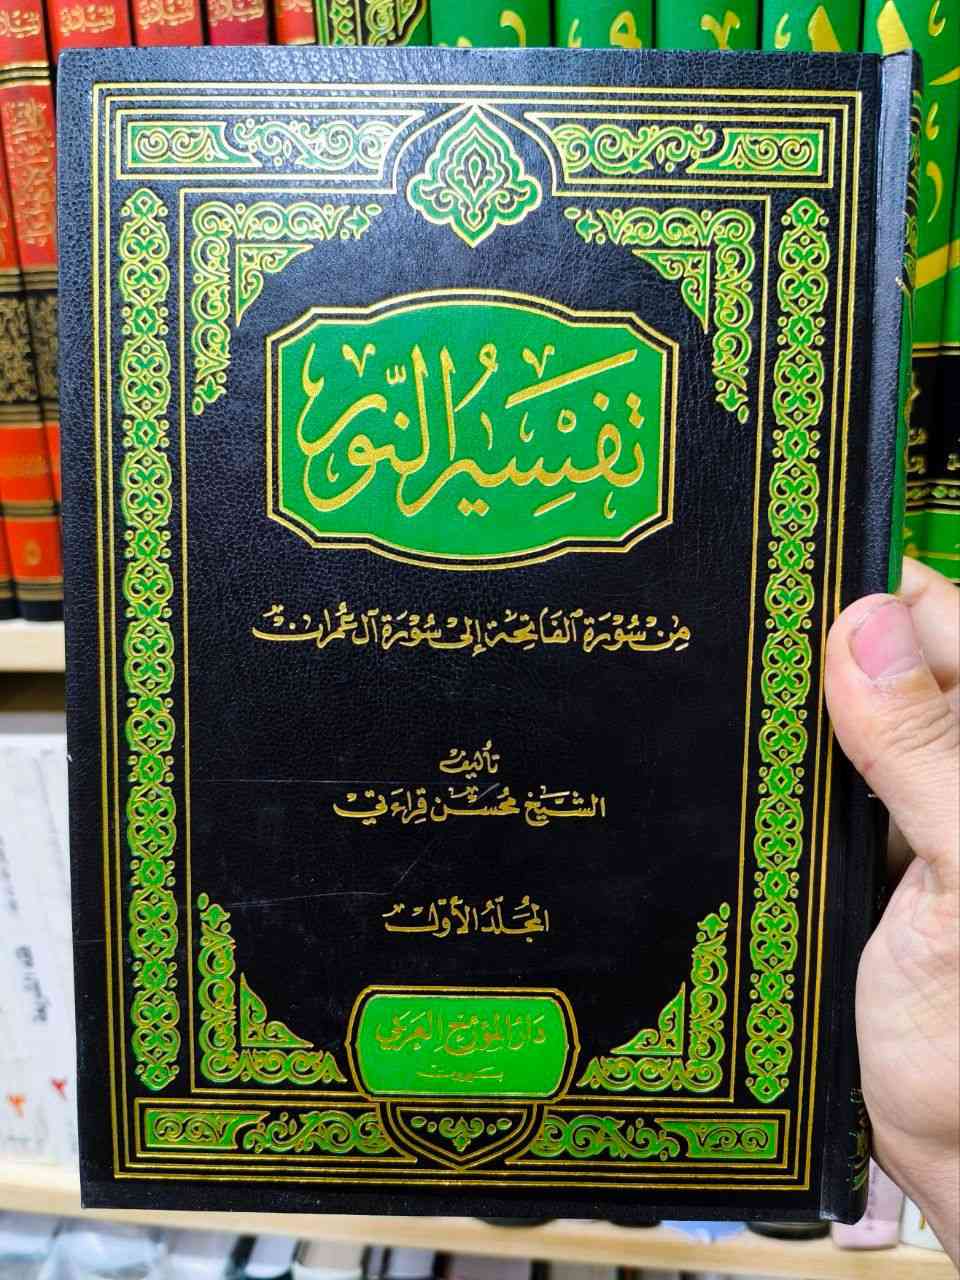 تفسير النّور
من سورة الفاتحة إلى سورة آل عمران
تأليف
الشيخ محسن قراءتي
المجلد الأول
دار المؤرخ العربي
بيروت